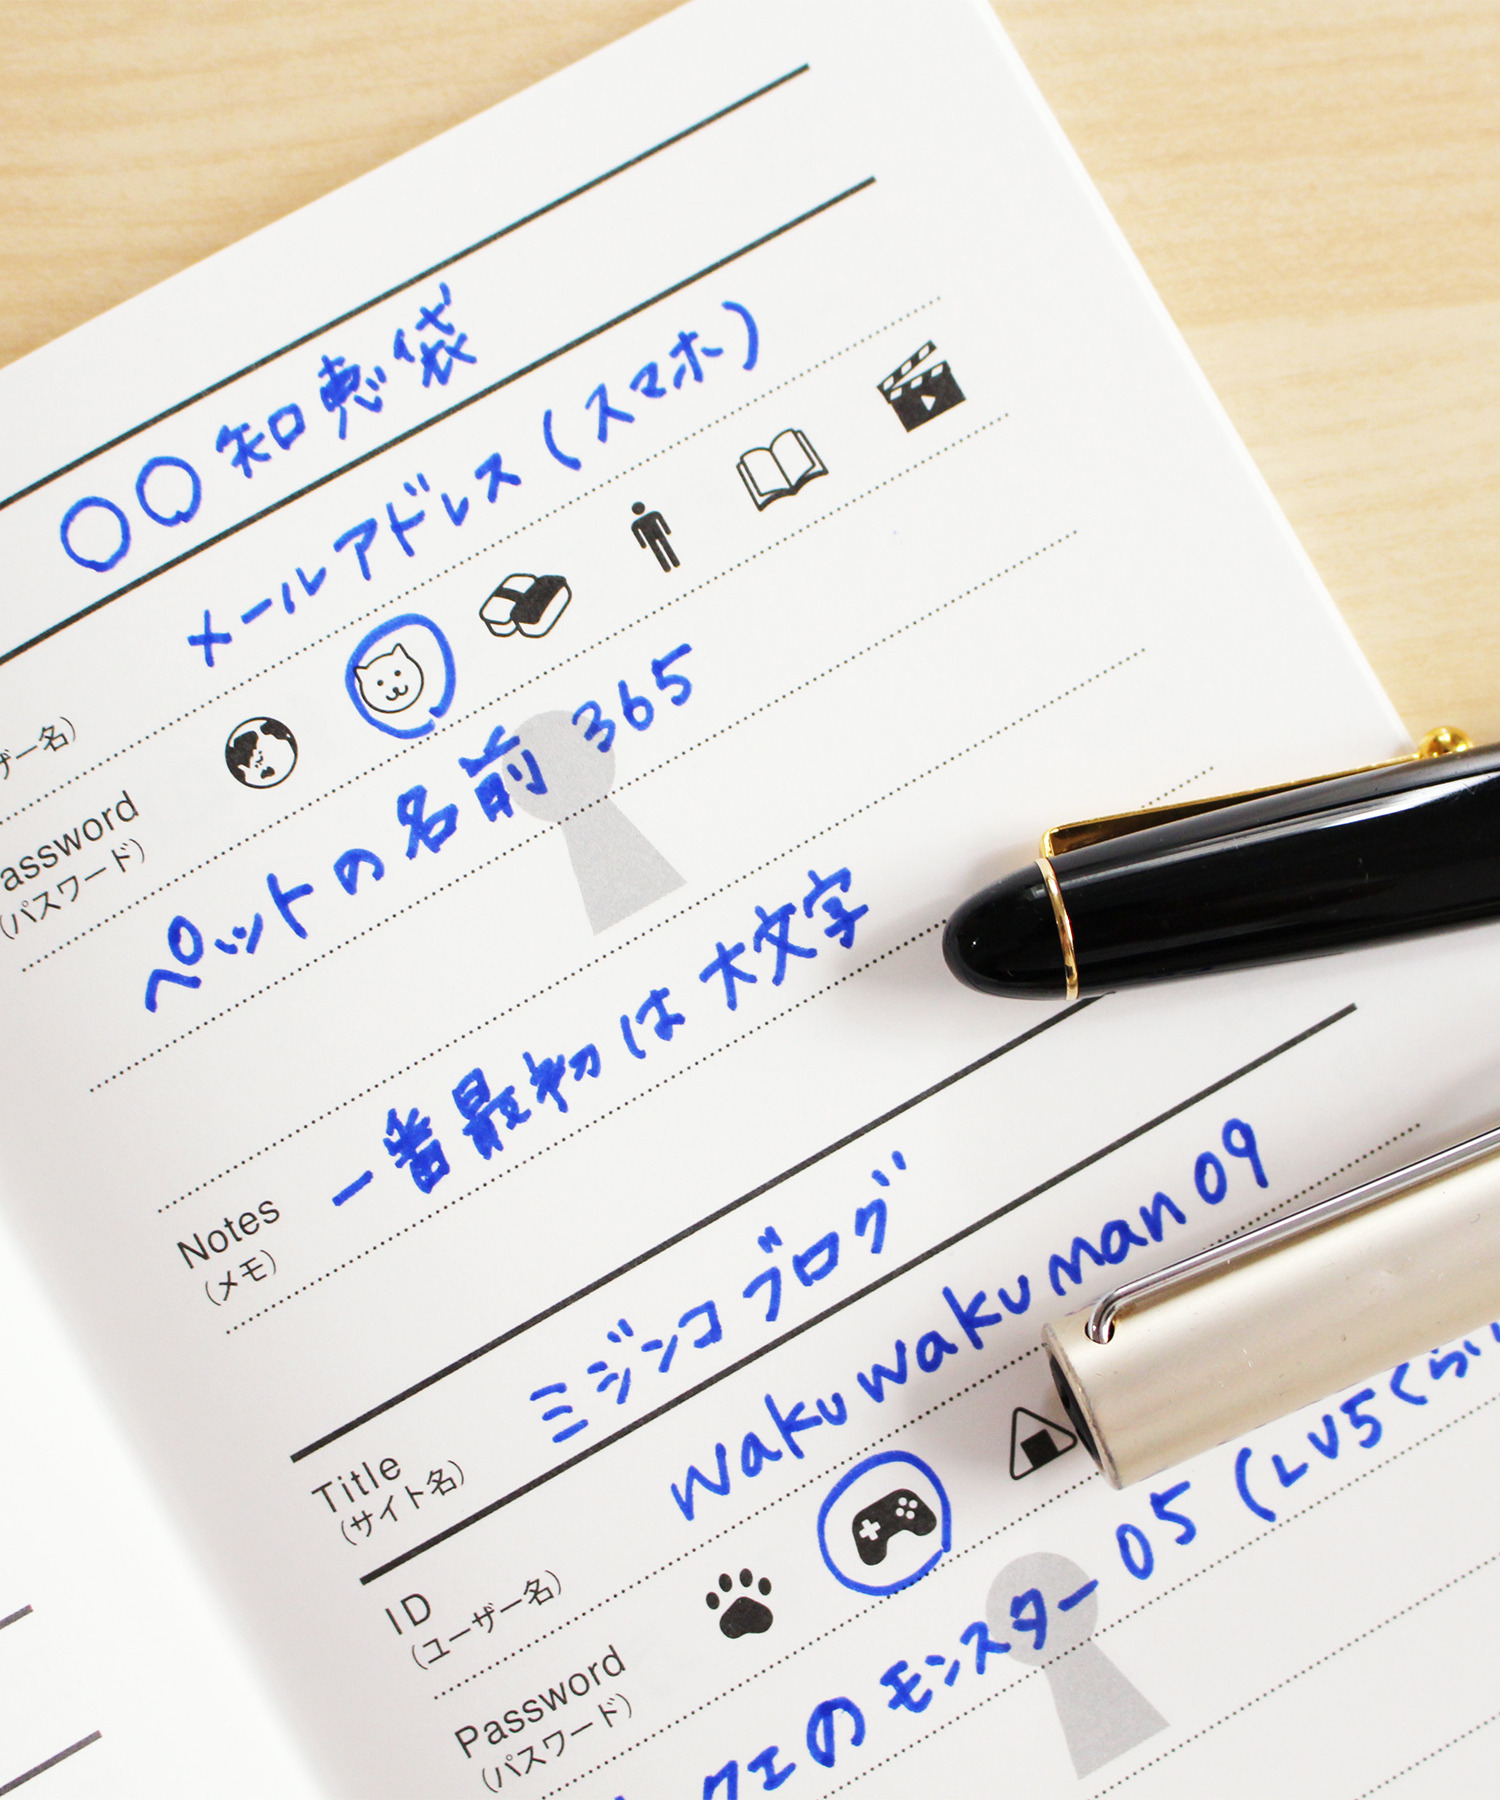 〇〇知恵袋
メールアドレス(スマホ)
ザー名)
assword
(パスワード)
ペットの名前365
Notes
(メモ)
一番最初は大文字
Title
(サイト名)
ミジンコブログ
ID
(ユーザー名)
wakuwakuman09
Password
(パスワード)
クェのモンスター05(LV5くらい